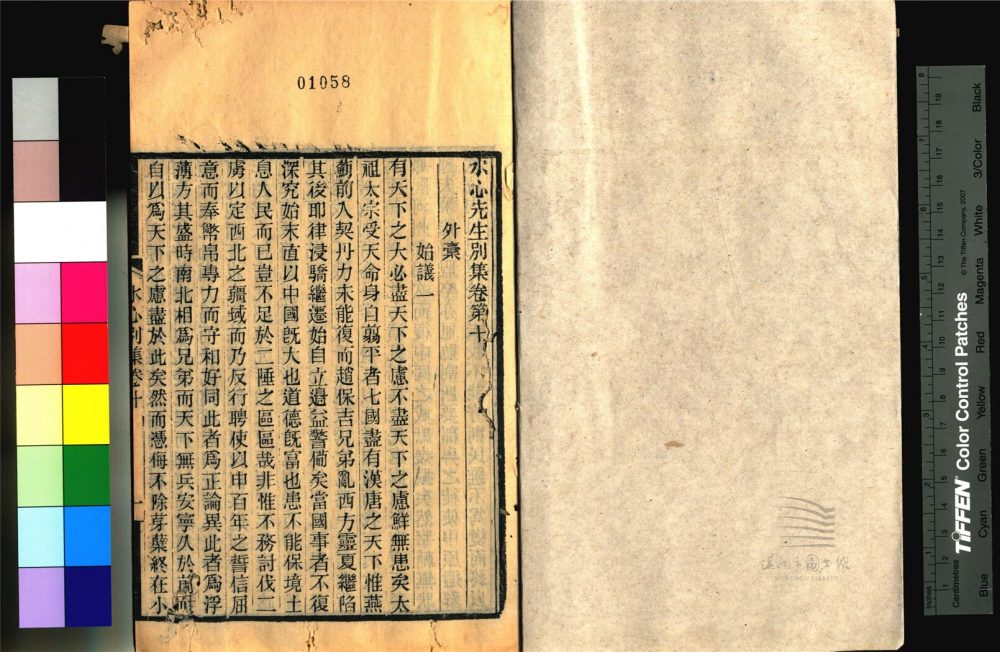 01058
水心先生別集卷第十
外稾
始議一
有天下之大必盡天下之慮不盡天下之慮鮮無患矣太
祖太宗受天命身自翦平者七國盡有漢唐之天下惟燕
薊前入契丹力未能復而趙保吉兄弟亂西方靈夏繼陷
其後耶律浸驕繼遷始自立邊益警備矣當國事者不復
深究始末直以中國旣大也道德旣富也患不能保境土
息人民而已豈不足於二陲之區區哉非惟不務討伐二
虜以定西北之疆域而乃反行聘使以申百年之誓信屈
意而奉幣帛專力而守和好同此者爲正論異此者爲浮
薄方其盛時南北相爲兄弟而天下無兵安寧久於前
自以爲天下之慮盡於此矣然而憑侮不除芽櫱終在小
水心別集卷十
一
温州市圖書館
WENZHOU LIBRARY
TIFFEN Color Control Patches
© The Tiffen Company, 2007
Inches
Centimetres
Blue
Cyan
Green
Yellow
Red
Magenta
White
3/Color
Black